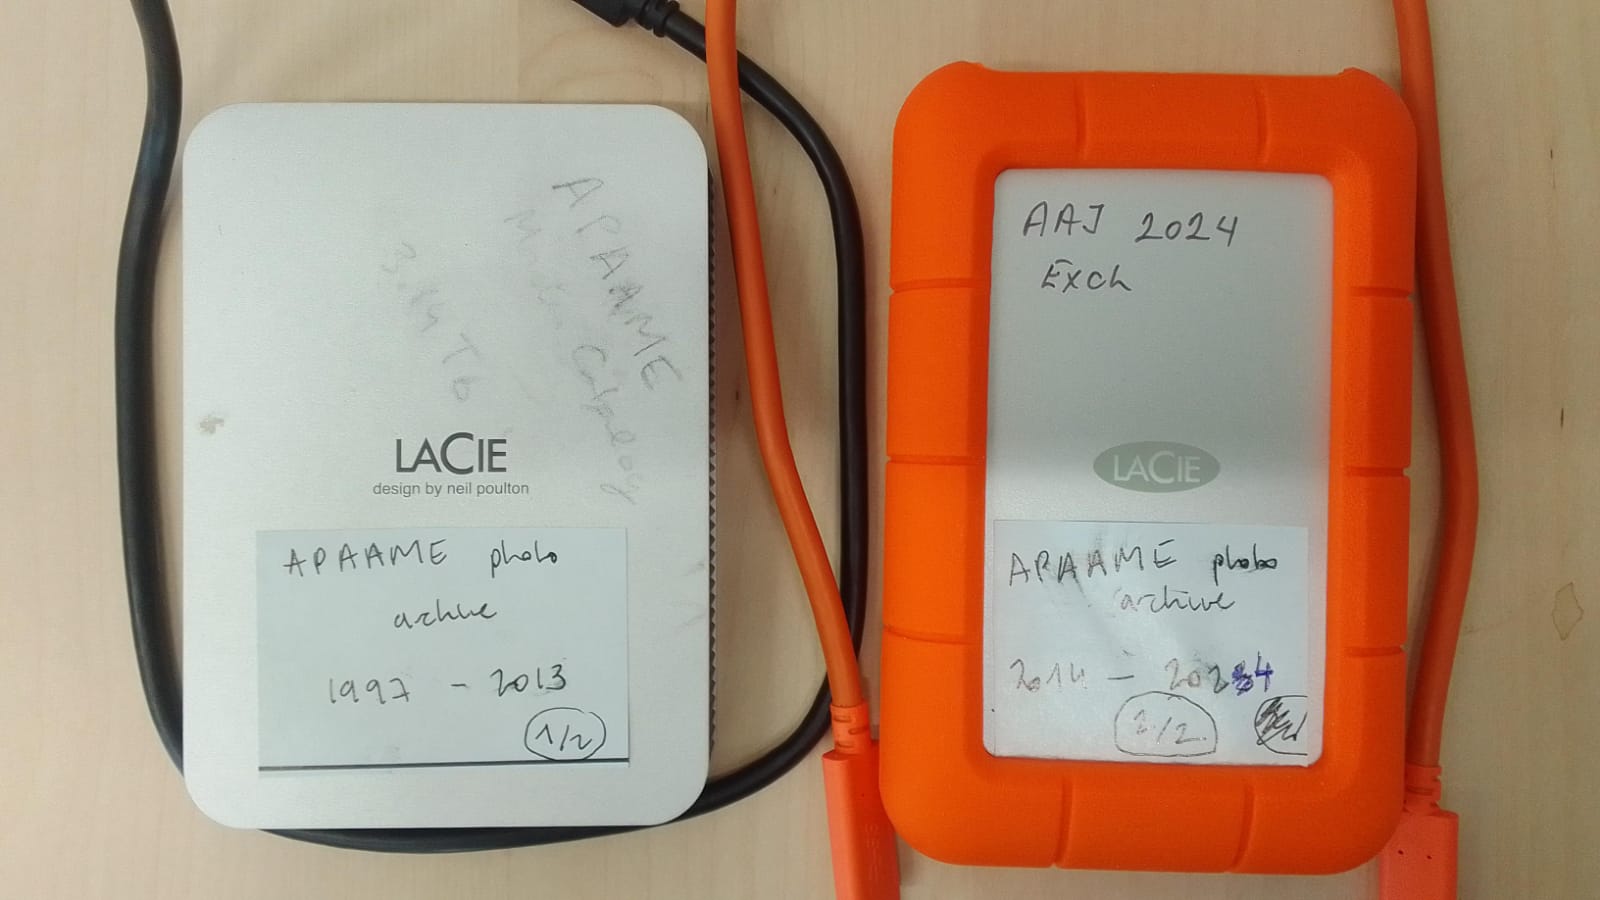 APAAME
3.14 Tb
LACIE
design by neil poulton
APAAME photo
archive
1997 - 2013
1/2
AAJ 2024
Exch
LACIE
APAAME photo
archive
2014 - 2024
2/2